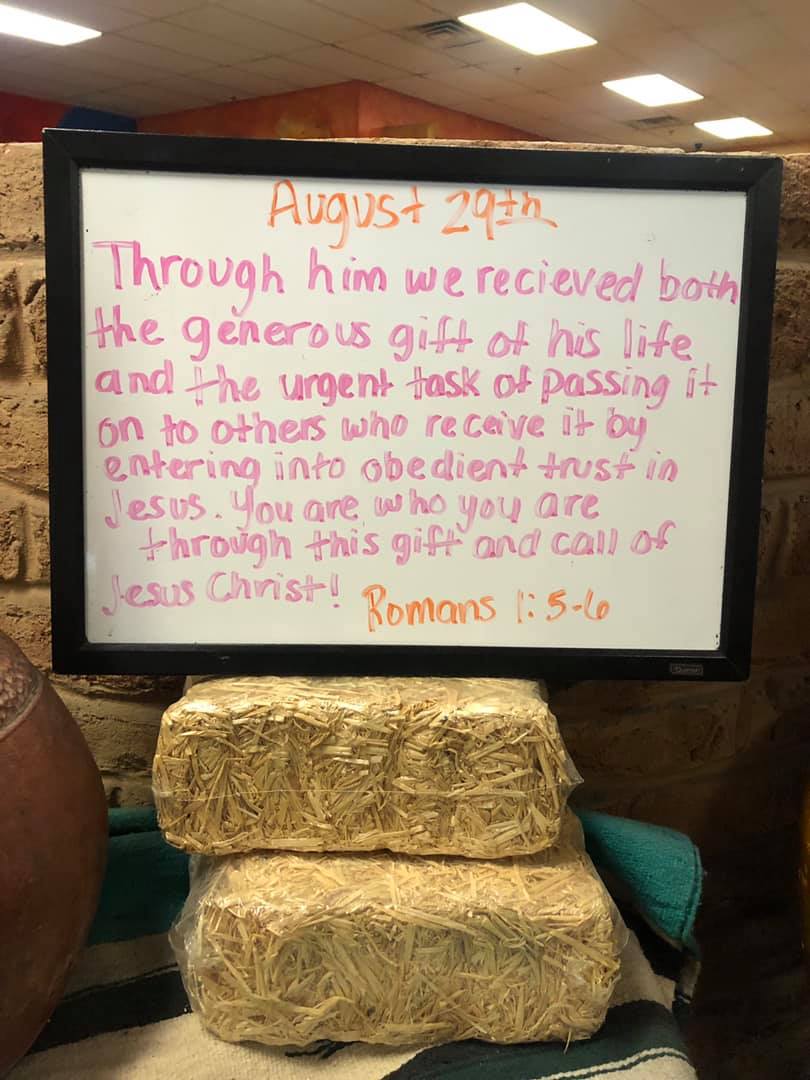 August 29th
Through him we recieved both
the generous gift of his life
and the urgent task of passing it
on to others who receive it by
entering into obedient trust in
Jesus. You are who you are
through this gift and call of
Jesus Christ! Romans 1:5-6
Quartet